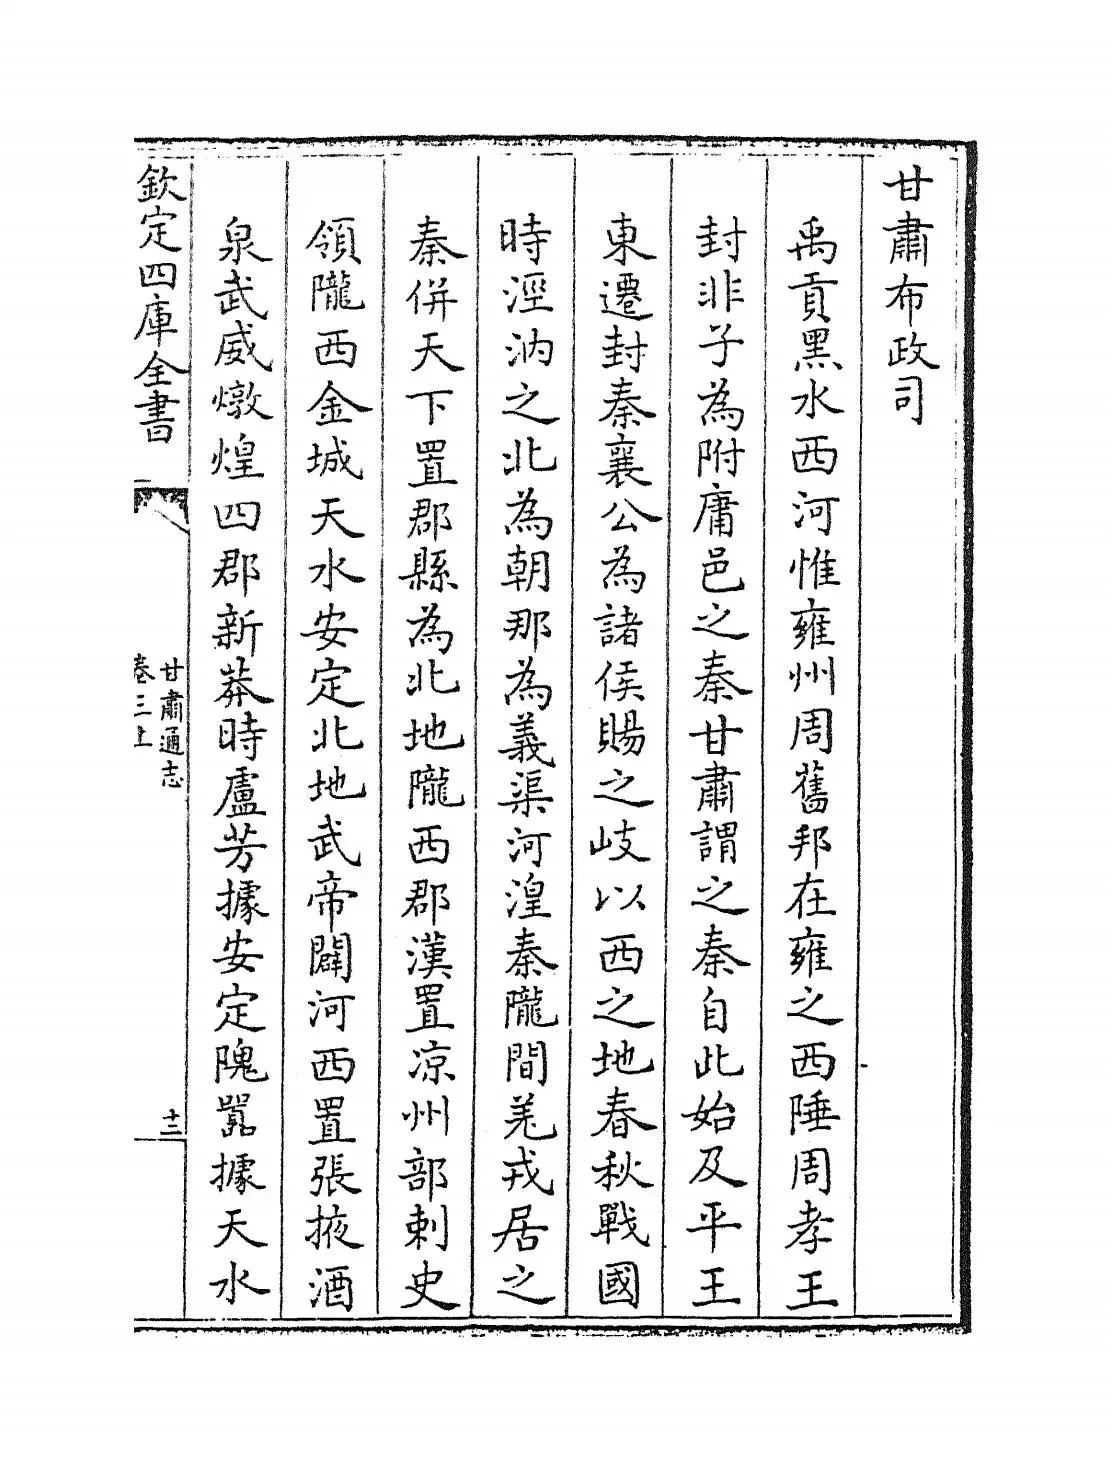 甘肅布政司
禹貢黑水西河惟雍州周舊邦在雍之西陲周孝王
封非子為附庸邑之秦甘肅謂之秦自此始及平王
東遷封秦襄公為諸侯賜之岐以西之地春秋戰國
時涇汭之北為朝那為義渠河湟秦隴間羌戎居之
秦併天下置郡縣為北地隴西郡漢置涼州部刺史
領隴西金城天水安定北地武帝闢河西置張掖酒
泉武威燉煌四郡新莽時盧芳據安定隗囂據天水
欽定四庫全書
甘肅通志
卷三上
十三